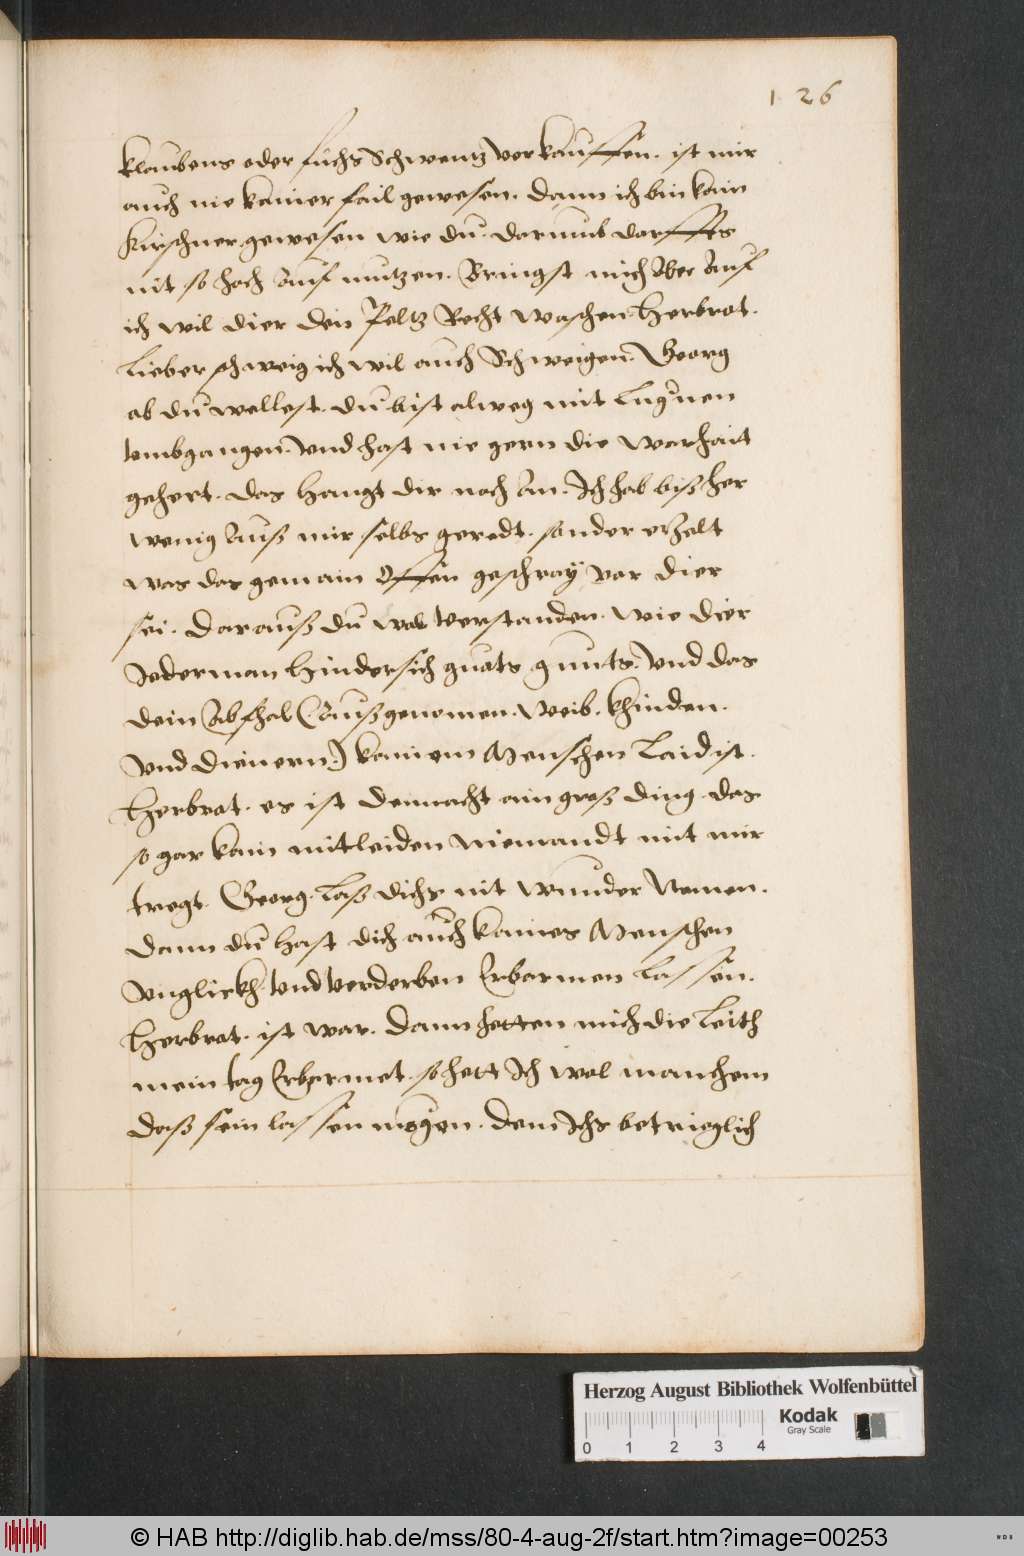 1 26
klaubens oder fuchs Schwentz verkauffen. ist mir
auch nie kainer fail gewesen. dann ich bin kain
Kirschner gewesen wie du. darumb darffts
nit so hoch auf mutzen. Bringst mich aber auf
ich wil dier den Peltz Recht waschen. Herbrot.
Lieber schweig ich wil auch Schweigen. Georg
ob du wellest. du bist alweg mit Lugnen
umbgangen. und hast nie gern die warhait
gehert. das hangt dir noch an. Ich hab bißher
wenig auß mir selbs geredt. sonder erzelt
was das gemain offen geschray vor dier
sei. darauß du wol verstanden. wie dier
Jederman hindersich guats gunts. und das
dein abfhal (außgenomen. Weib. khinden.
und dienern.) kainem Menschen Laid ist.
Herbrot. es ist dennacht ain groß ding das
so gar kain mitleiden Niemandt mit mir
tregt. Georg. Laß dichs nit wunder Nemen.
dann du hast dich auch kaines Menschen
Unglickh und verderben Erbarmen lassen.
Herbrot. ist war. dann hetten mich die Leith
mein tag Erbarmet. so hett Ich wol manchem
daß sein lassen mögen. dem Ichs betrieglich
Herzog August Bibliothek Wolfenbüttel
Kodak
Gray Scale
0 1 2 3 4
© HAB http://diglib.hab.de/mss/80-4-aug-2f/start.htm?image=00253